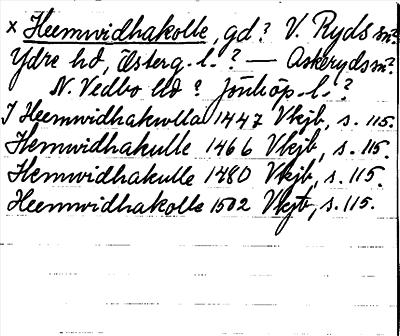 x Heemwidhakolle, gd? V. Ryds sn?
Ydre hd, Österg. l.? — Askeryds sn?
N. Vedbo hd? Jönköp. l.?
I Heemwidhakwlla 1447 Vkjb, s. 115.
Hemwidhakulle 1466 Vkjb, s. 115.
Hemwidhakulle 1480 Vkjb, s. 115.
Heemwidhakolle 1502 Vkjb, s. 115.